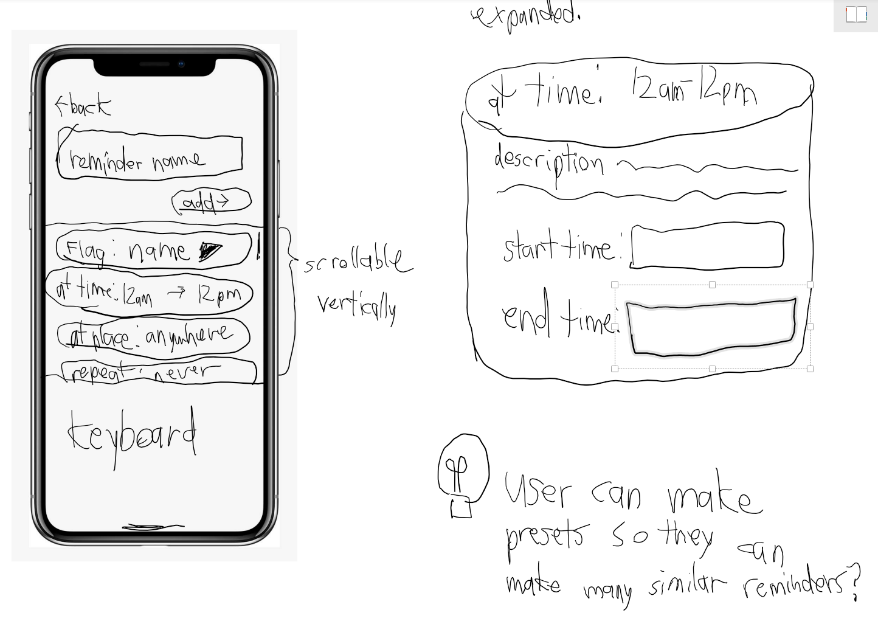 expanded.
←back
reminder name
add→
Flag: name
at time: 12am → 12pm
at place: anywhere
repeat: never
keyboard
scrollable
vertically
at time: 12am-12pm
description
start time:
end time:
user can make
presets so they can
make many similar reminders?